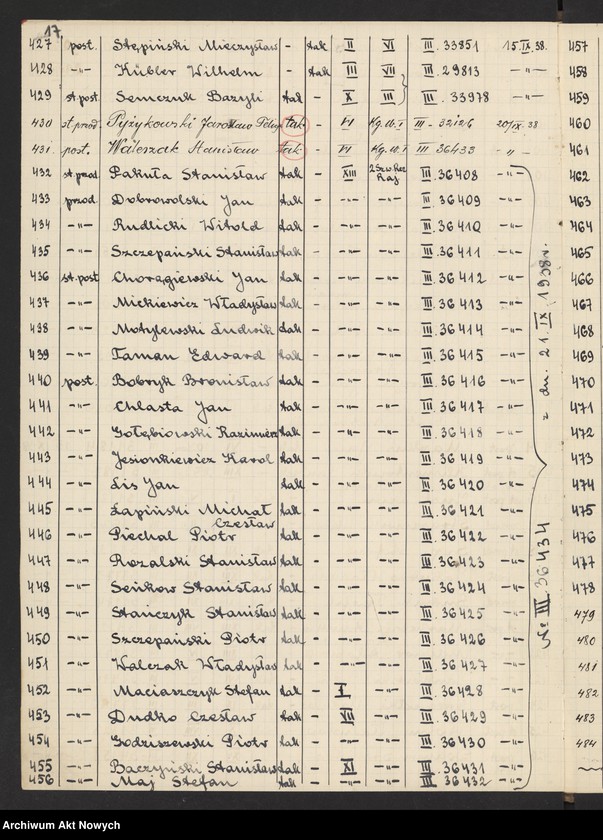 17.
427 post. Stępiński Mieczysław - tak II VI III. 33851 15.IX.38. 457
428 -"- Kübler Wilhelm - tak III VII III. 29813 -"- 458
429 st.post. Semczuk Bazyli tak - X III III. 33978 -"- 459
430 st.przod. Jarosław tak - VI III - 32126 20/IX.38 460
431 post. Walerzak Stanisław tak - VI III 36433 -"- 461
432 st.przod. Pakuła Stanisław tak - XIII III. 36408 -"- 462
433 przod. Dobrowolski Jan tak - -"- -"- III. 36409 -"- 463
434 -"- Rudlicki Witold tak - -"- -"- III. 36410 -"- 464
435 -"- Szczepański Stanisław tak - -"- -"- III. 36411 -"- 465
436 st.post. Chorągiewski Jan tak - -"- -"- III. 36412 -"- 466
437 -"- Mickiewicz Władysław tak - -"- -"- III. 36413 -"- 467
438 -"- Motylewski Ludwik tak - -"- -"- III. 36414 -"- 468
439 -"- Taman Edward tak - -"- -"- III. 36415 -"- 469
440 post. Bobryk Bronisław tak - -"- -"- III. 36416 -"- 470
441 -"- Chlasta Jan tak - -"- -"- III. 36417 -"- 471
442 -"- Gołębiowski Kazimierz tak - -"- -"- III. 36418 -"- 472
443 -"- Jesionkiewicz Karol tak - -"- -"- III. 36419 -"- 473
444 -"- Lis Jan tak - -"- -"- III. 36420 -"- 474
445 -"- Łapiński Michał tak - -"- -"- III. 36421 -"- 475
Czesław
446 -"- Piechal Piotr tak - -"- -"- III. 36422 -"- 476
447 -"- Rozalski Stanisław tak - -"- -"- III. 36423 -"- 477
448 -"- Seńkow Stanisław tak - -"- -"- III. 36424 -"- 478
449 -"- Stańczyk Stanisław tak - -"- -"- III. 36425 -"- 479
450 -"- Szczepański Piotr tak - -"- -"- III. 36426 -"- 480
451 -"- Walczak Władysław tak - -"- -"- III. 36427 -"- 481
452 -"- Maciaszczyk Stefan tak - I -"- III. 36428 -"- 482
453 -"- Dudko Czesław tak - VII -"- III. 36429 -"- 483
454 -"- Godziszewski Piotr tak - -"- -"- III. 36430 -"- 484
455 -"- Baczyński Stanisław tak - XI -"- III. 36431 -"-
456 -"- Maj Stefan tak - -"- -"- III. 36432 -"-
№ III. 36434 z dn. 21.IX.1938 r.
Archiwum Akt Nowych